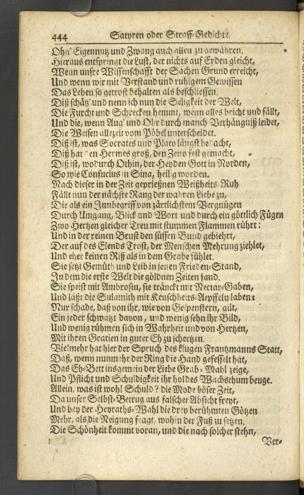 444 Satyren oder Straff-Gedichte.
Ohn' Eigennutz und Zwang auch allen zu gewähren.
Hieraus entspringt die Lust, der nichts auf Erden gleicht,
Wenn unsre Wissenschafft der Sachen Grund erreicht,
Und wenn wir mit Verstand und ruhigem Gewissen
Das Leben so getrost behalten als beschliessen.
Diß schätz' und nenn ich nun die Seligkeit der Welt,
Die Furcht und Schrecken hemmt, wenn alles bricht und fällt,
Und die, wenn Aug' und Ohr durch manch Verhängniß leidet,
Die Weisen allezeit vom Pöbel unterscheidet.
Diß ist, was Socrates und Plato längst bedacht,
Diß hat den Hermes groß, den Zeno fest gemacht,
Diß ist, wodurch Othin, der Heyden Gott in Norden,
So wie Confucius in Sina, heilig worden.
Nach dieser in der Zeit gepriesnen Weißheits-Ruh
Fällt nun der nächste Rang der wahren Liebe zu,
Die als ein Innbegriff von zärtlichstem Vergnügen
Durch Umgang, Blick und Wort und durch ein göttlich Fügen
Zwo Hertzen gleicher Treu mit stummen Flammen rührt:
Und in der reinen Brust den süssen Bund gebiehrt,
Der auf des Elends Trost, der Menschen Mehrung ziehlet,
Und eher keinen Riß als in dem Grabe fühlet.
Sie setzt Gemüth und Leib in jenen Frieden-Stand,
In dem die erste Welt die göldnen Zeiten fand.
Sie speist mit Ambrosin, sie tränckt mit Nectar-Gaben,
Und läst die Sulamith mit Keuschheits-Aepffeln laben:
Nur schade, daß von ihr, wie von Gespenstern, all,
Ein jeder schwatzt davon, und wenig sehn ihr Bild,
Und wenig rühmen sich in Wahrheit und von Hertzen,
Mit ihren Gratien in guter Eh zu schertzen.
Vielmehr hat hier der Spruch des klugen Frantzmanns Statt,
Daß, wenn nunmehr der Ring die Hand gefesselt hat,
Das Eh-Bett insgemein der Liebe Grab-Mahl zeige,
Und Pflicht und Schuldigkeit ihr holdes Wachsthum beuge.
Allein, was ist wohl Schuld? die Mode böser Zeit,
Da unser Selbst-Betrug aus falscher Absicht freyt,
Und bey der Heyraths-Wahl die drey berühmten Götzen
Mehr, als die Neigung fragt, wohin der Fuß zu setzen.
Die Schönheit kommt voran, und die nach solcher stehn,
Ver-